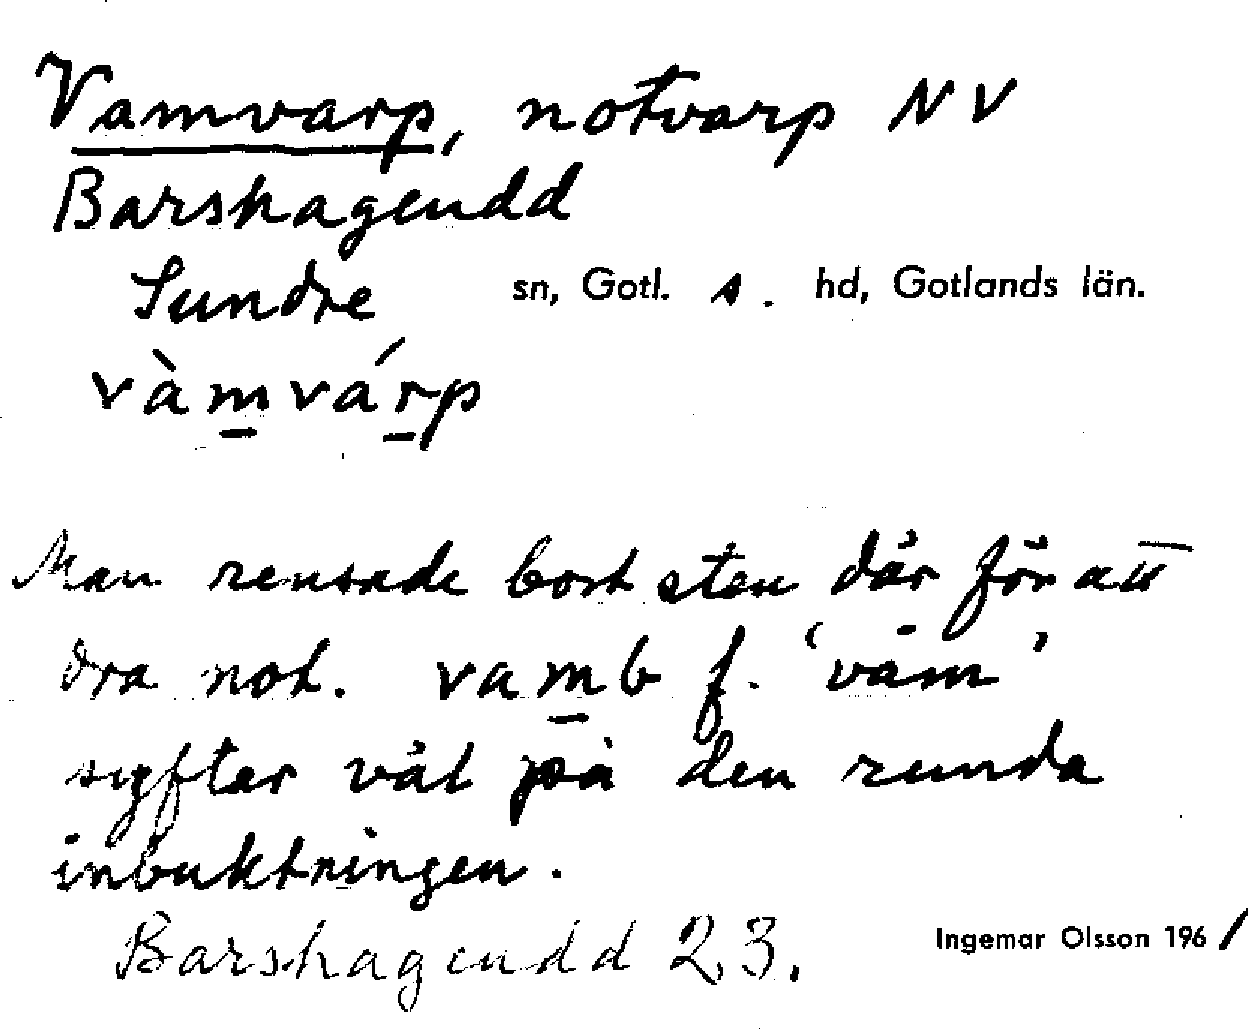 Vamvarp, notvarp NV
Barshageudd
Sundre sn, Gotl. s. hd, Gotlands län.
vàm̲vár̲p
Man rensade bort sten där för att
dra not. vam̲b f. 'våm'
syftar väl på den runda
inbuktningen.
Barshageudd 23.
Ingemar Olsson 1961